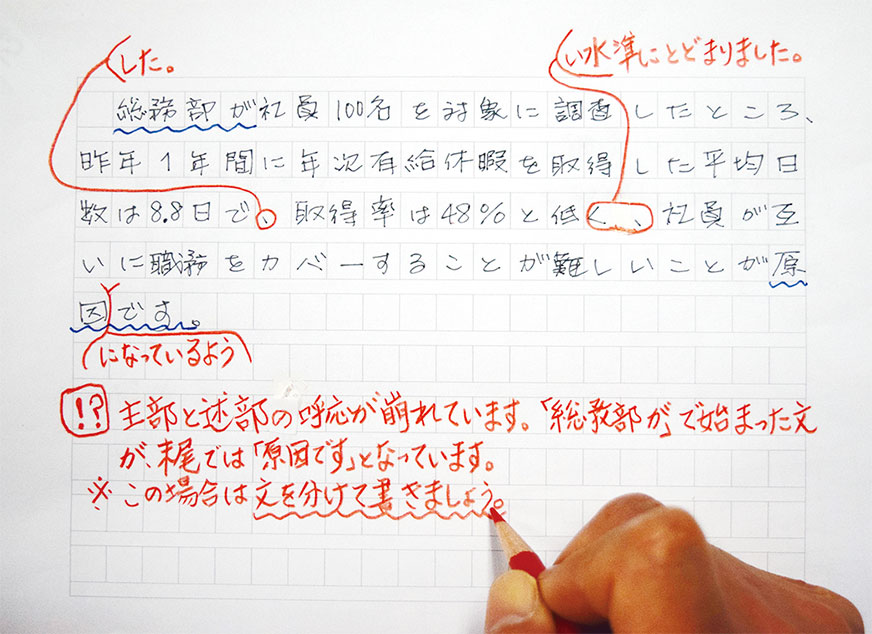 した。
い水準にとどまりました。
総務部が社員100名を対象に調査したところ、
昨年1年間に年次有給休暇を取得した平均日
数は8.8日で、取得率は48%と低く、社員が互
いに職務をカバーすることが難しいことが原
因です。
になっているよう
!?主部と述部の呼応が崩れています。「総務部が」で始まった文
が、末尾では「原因です」となっています。
※この場合は文を分けて書きましょう。